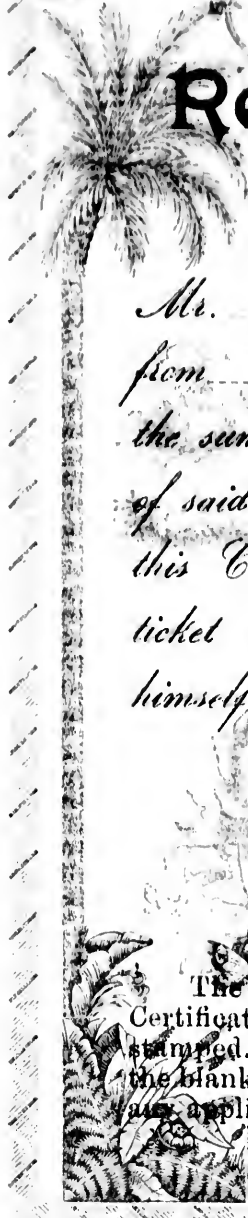 Ro
Mr.
from
the sum
of said
this C
ticket
himself
The
Certificat
stamped.
the blank
any appli